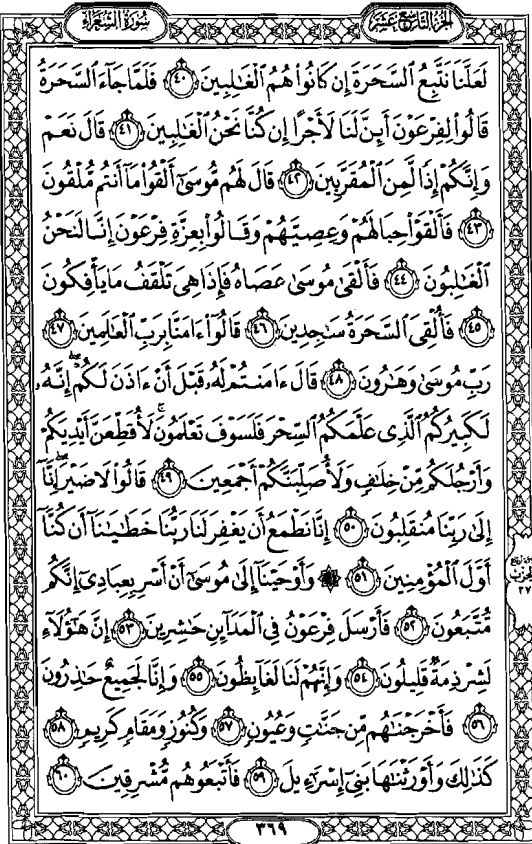 سُورَةُ الشُّعَرَاءِ
الجُزءُ التَّاسِعَ عَشَرَ
لَعَلَّنَا نَتَّبِعُ ٱلسَّحَرَةَ إِن كَانُوا۟ هُمُ ٱلْغَـٰلِبِينَ ٤٠ فَلَمَّا جَآءَ ٱلسَّحَرَةُ
قَالُوا۟ لِفِرْعَوْنَ أَئِنَّ لَنَا لَأَجْرًا إِن كُنَّا نَحْنُ ٱلْغَـٰلِبِينَ ٤١ قَالَ نَعَمْ
وَإِنَّكُمْ إِذًا لَّمِنَ ٱلْمُقَرَّبِينَ ٤٢ قَالَ لَهُم مُّوسَىٰٓ أَلْقُوا۟ مَآ أَنتُم مُّلْقُونَ
٤٣ فَأَلْقَوْا۟ حِبَالَهُمْ وَعِصِيَّهُمْ وَقَالُوا۟ بِعِزَّةِ فِرْعَوْنَ إِنَّا لَنَحْنُ
ٱلْغَـٰلِبُونَ ٤٤ فَأَلْقَىٰ مُوسَىٰ عَصَاهُ فَإِذَا هِىَ تَلْقَفُ مَا يَأْفِكُونَ
٤٥ فَأُلْقِىَ ٱلسَّحَرَةُ سَـٰجِدِينَ ٤٦ قَالُوٓا۟ ءَامَنَّا بِرَبِّ ٱلْعَـٰلَمِينَ ٤٧
رَبِّ مُوسَىٰ وَهَـٰرُونَ ٤٨ قَالَ ءَامَنتُمْ لَهُۥ قَبْلَ أَنْ ءَاذَنَ لَكُمْ ۖ إِنَّهُۥ
لَكَبِيرُكُمُ ٱلَّذِى عَلَّمَكُمُ ٱلسِّحْرَ فَلَسَوْفَ تَعْلَمُونَ ۚ لَأُقَطِّعَنَّ أَيْدِيَكُمْ
وَأَرْجُلَكُم مِّنْ خِلَـٰفٍ وَلَأُصَلِّبَنَّكُمْ أَجْمَعِينَ ٤٩ قَالُوا۟ لَا ضَيْرَ ۖ إِنَّآ
إِلَىٰ رَبِّنَا مُنقَلِبُونَ ٥٠ إِنَّا نَطْمَعُ أَن يَغْفِرَ لَنَا رَبُّنَا خَطَـٰيَـٰنَآ أَن كُنَّآ
أَوَّلَ ٱلْمُؤْمِنِينَ ٥١ ۞ وَأَوْحَيْنَآ إِلَىٰ مُوسَىٰٓ أَنْ أَسْرِ بِعِبَادِىٓ إِنَّكُم
مُّتَّبَعُونَ ٥٢ فَأَرْسَلَ فِرْعَوْنُ فِى ٱلْمَدَآئِنِ حَـٰشِرِينَ ٥٣ إِنَّ هَـٰٓؤُلَآءِ
لَشِرْذِمَةٌ قَلِيلُونَ ٥٤ وَإِنَّهُمْ لَنَا لَغَآئِظُونَ ٥٥ وَإِنَّا لَجَمِيعٌ حَـٰذِرُونَ
٥٦ فَأَخْرَجْنَـٰهُم مِّن جَنَّـٰتٍ وَعُيُونٍ ٥٧ وَكُنُوزٍ وَمَقَامٍ كَرِيمٍ ٥٨
كَذَٰلِكَ وَأَوْرَثْنَـٰهَا بَنِىٓ إِسْرَٰٓءِيلَ ٥٩ فَأَتْبَعُوهُم مُّشْرِقِينَ ٦٠
٣٦٩
الحزب
٣٧